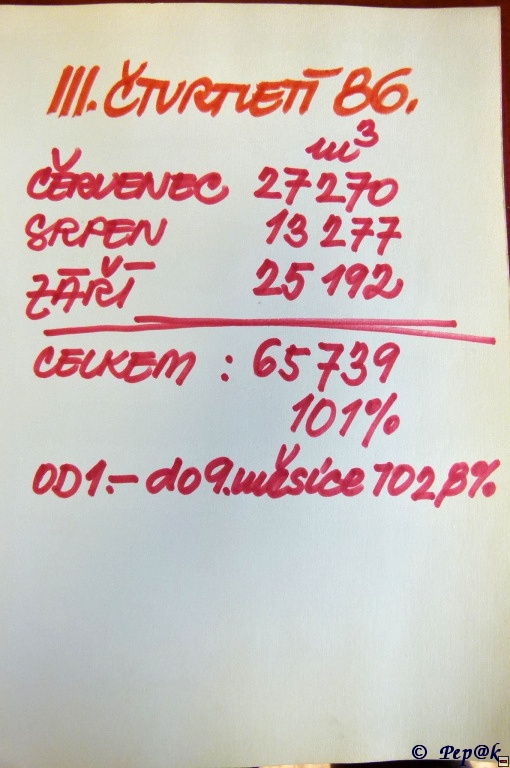 III. ČTVRTLETÍ 86.
m³
ČERVENEC 27 270
SRPEN 13 277
ZÁŘÍ 25 192
CELKEM : 65 739
101%
OD 1.- do 9. měsíce 102,8%
© Pep@k